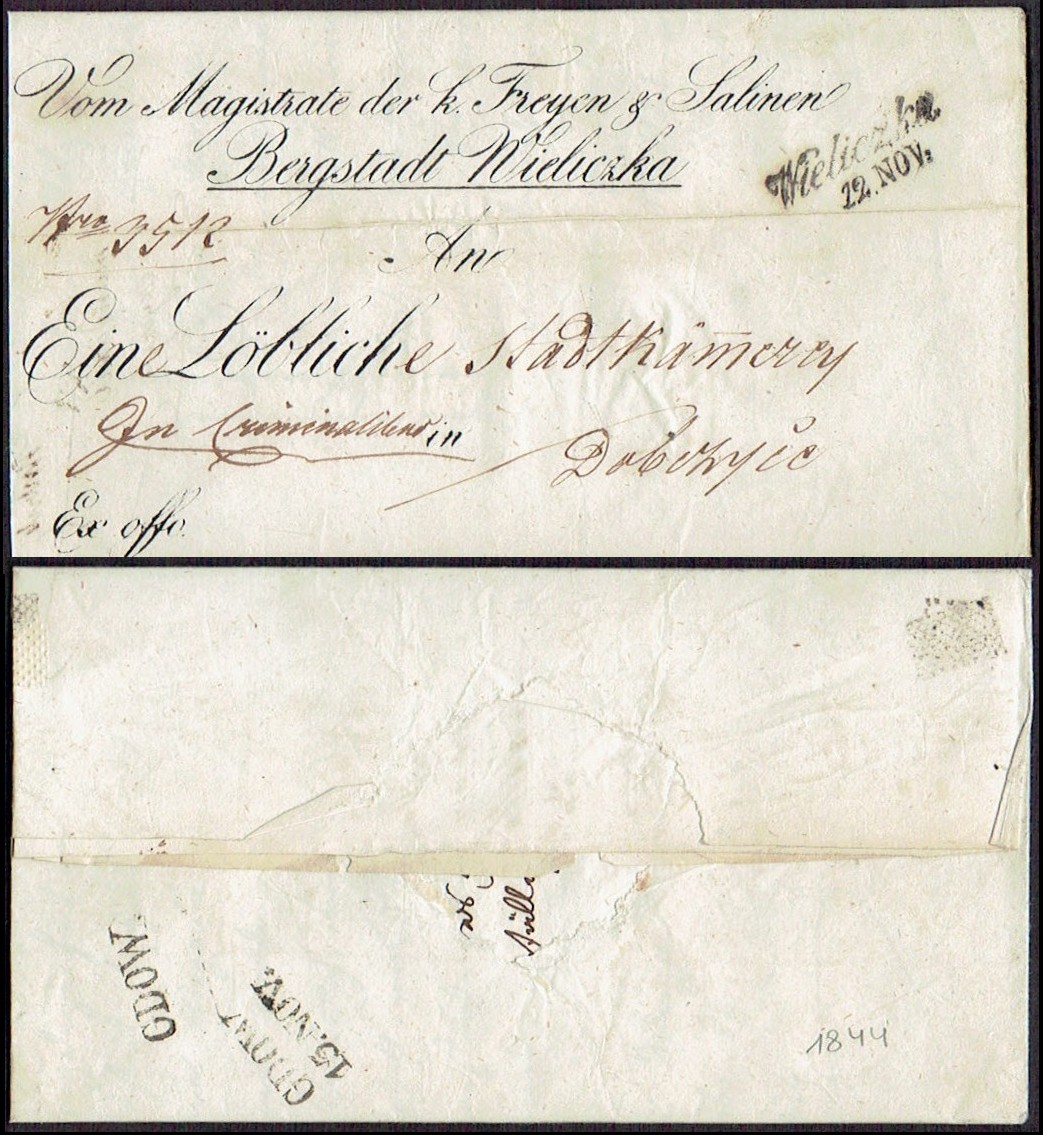 Vom Magistrate der k. Freyen & Salinen
Bergstadt Wieliczka
Wieliczka
12. NOV:
Nro 3512
An
Eine Löbliche Stadtkam̅erey
In Criminalibus in
Dobczyce
Ex offo.
GDOW.
GDOW
15. NOV.
1844